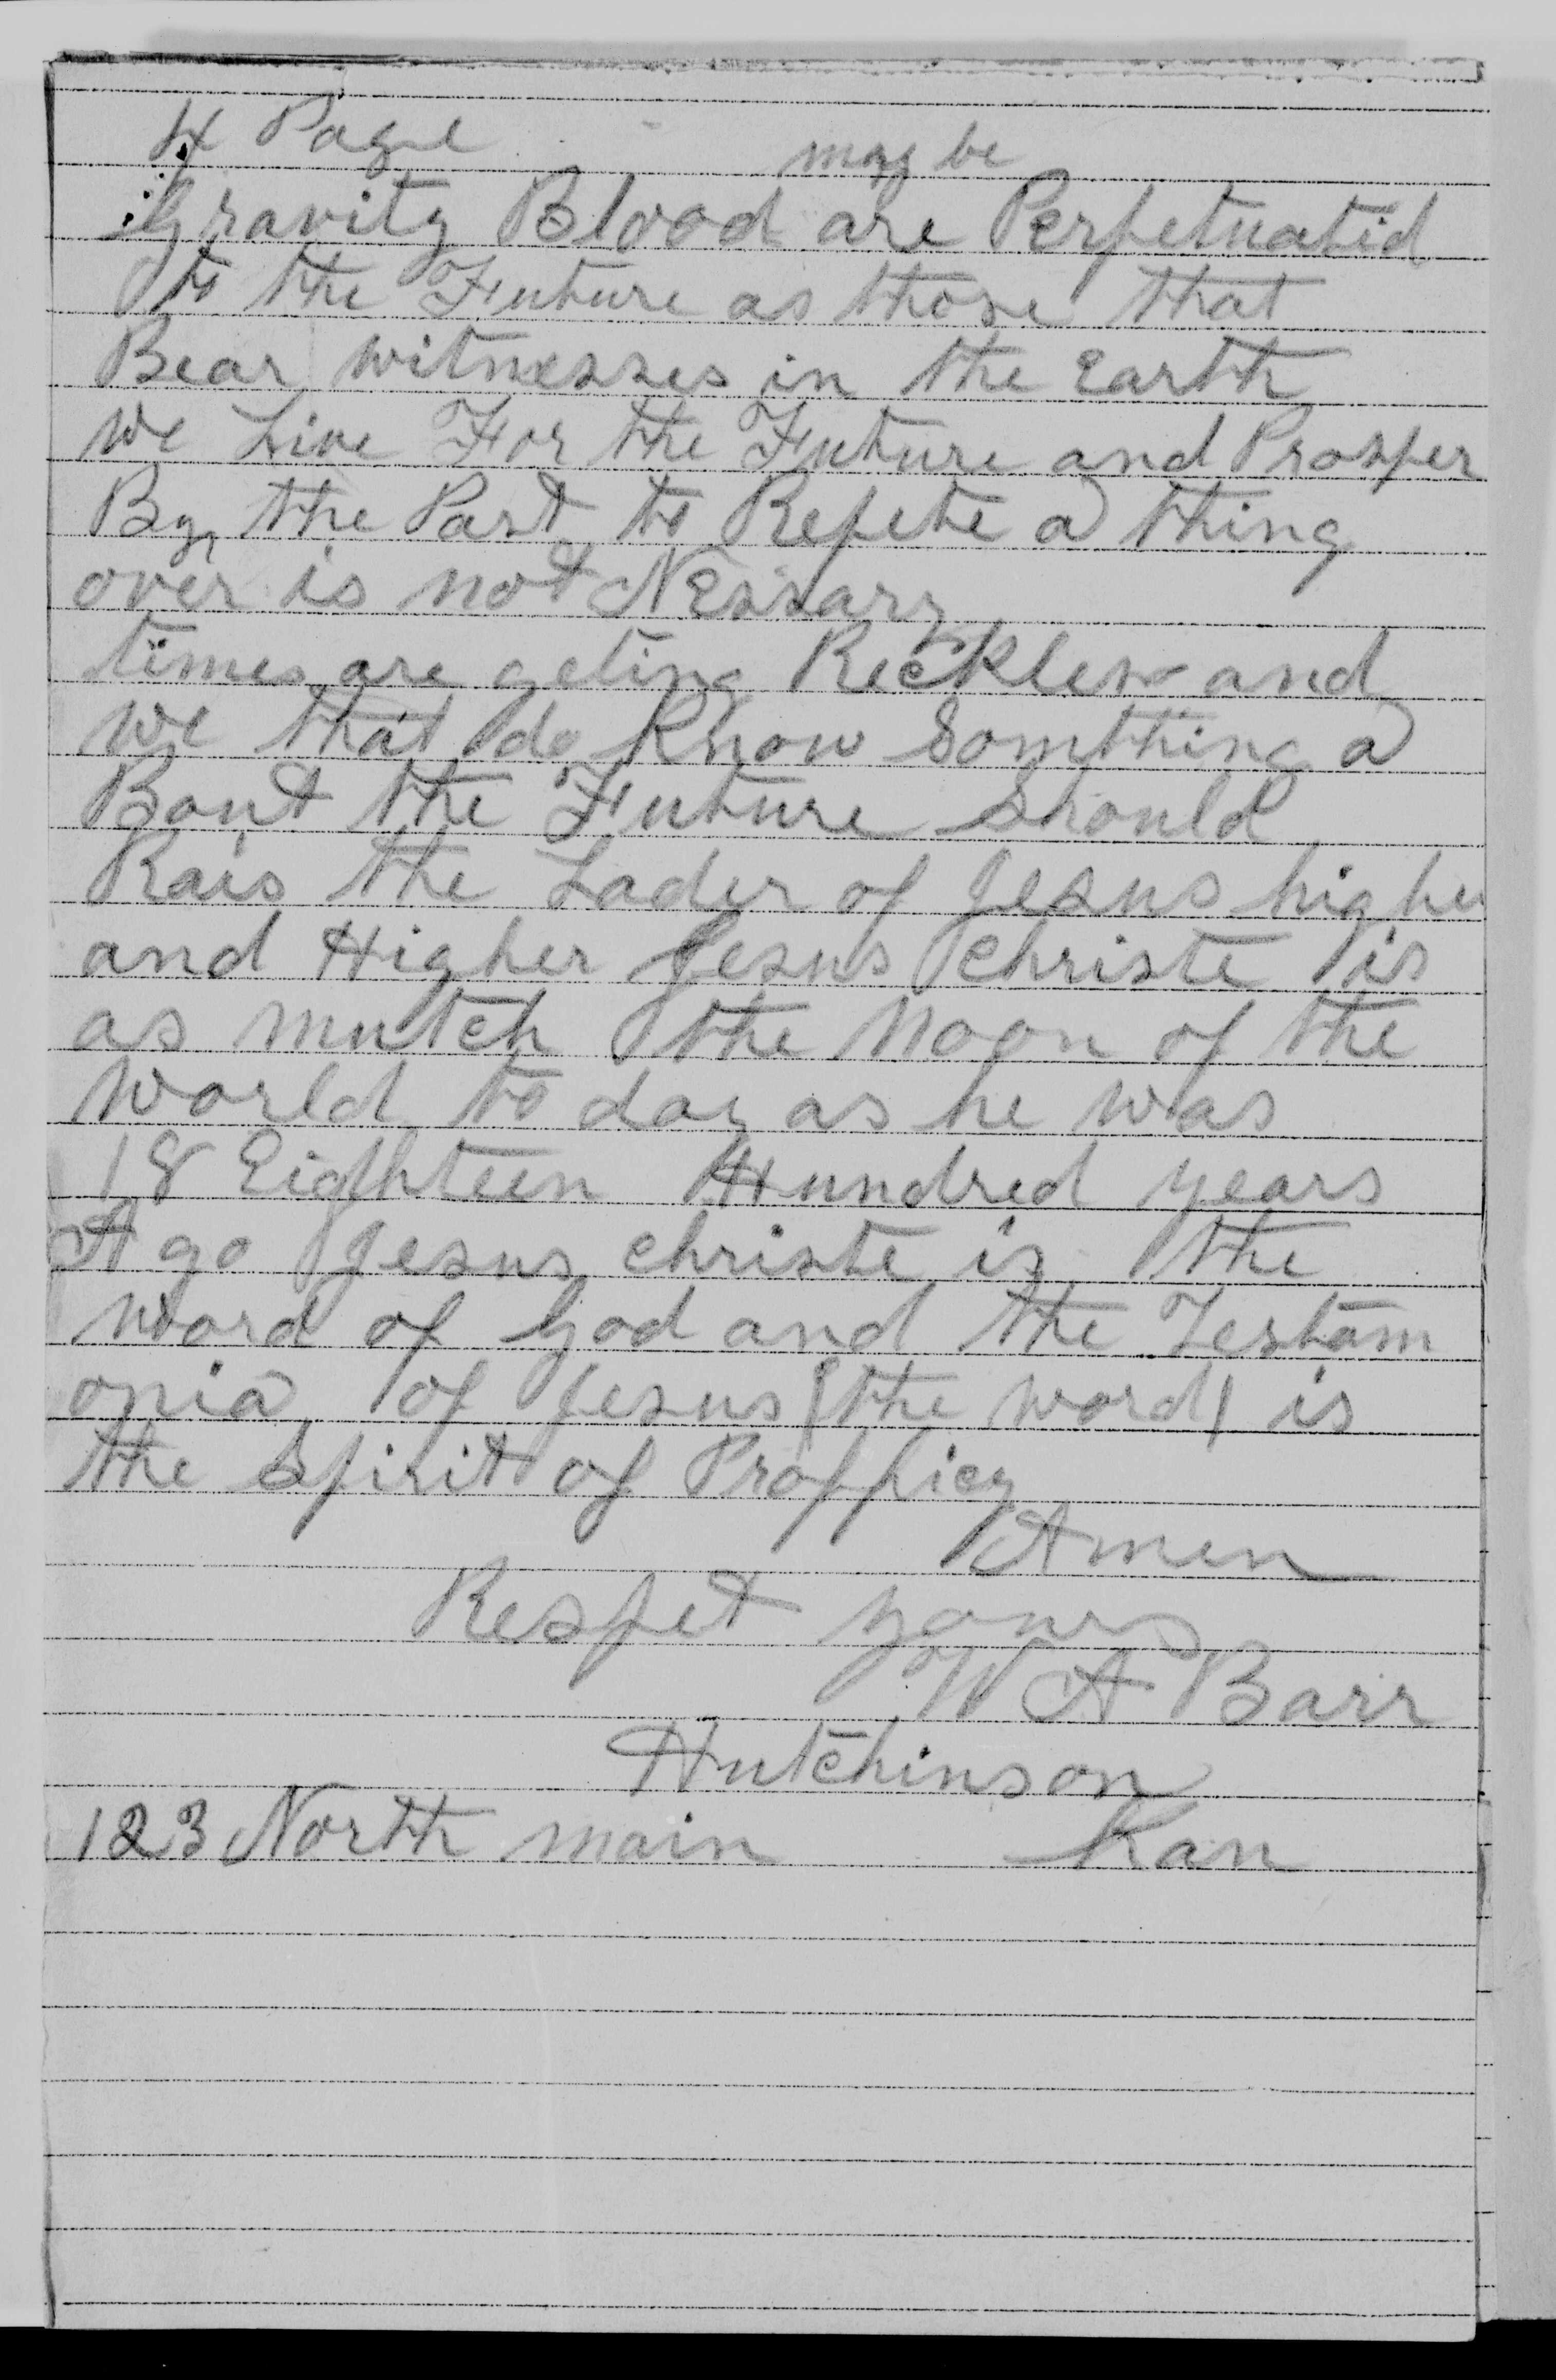 4 Page
may be
Gravity Blood are Perpetuatid
to the Future as those that
Bear witnesses in the Earth
we Live For the Future and Prosper
By the Past to Repete a thing
over is not Nessary
times are geting Reckless and
we that do Know Somthing a
Bout the Future Should
Rais the Lader of Jesus higher
and Higher Jesus Christe is
as mutch the Noon of the
World to day as he was
18 Eighteen Hundred years
A go Jesus Christe is the
word of God and the Testam
onia of Jesus (the word) is
the Spirit of Proffiey
Amen
Respet yours
W A Barr
Hutchinson
123 North main Kan